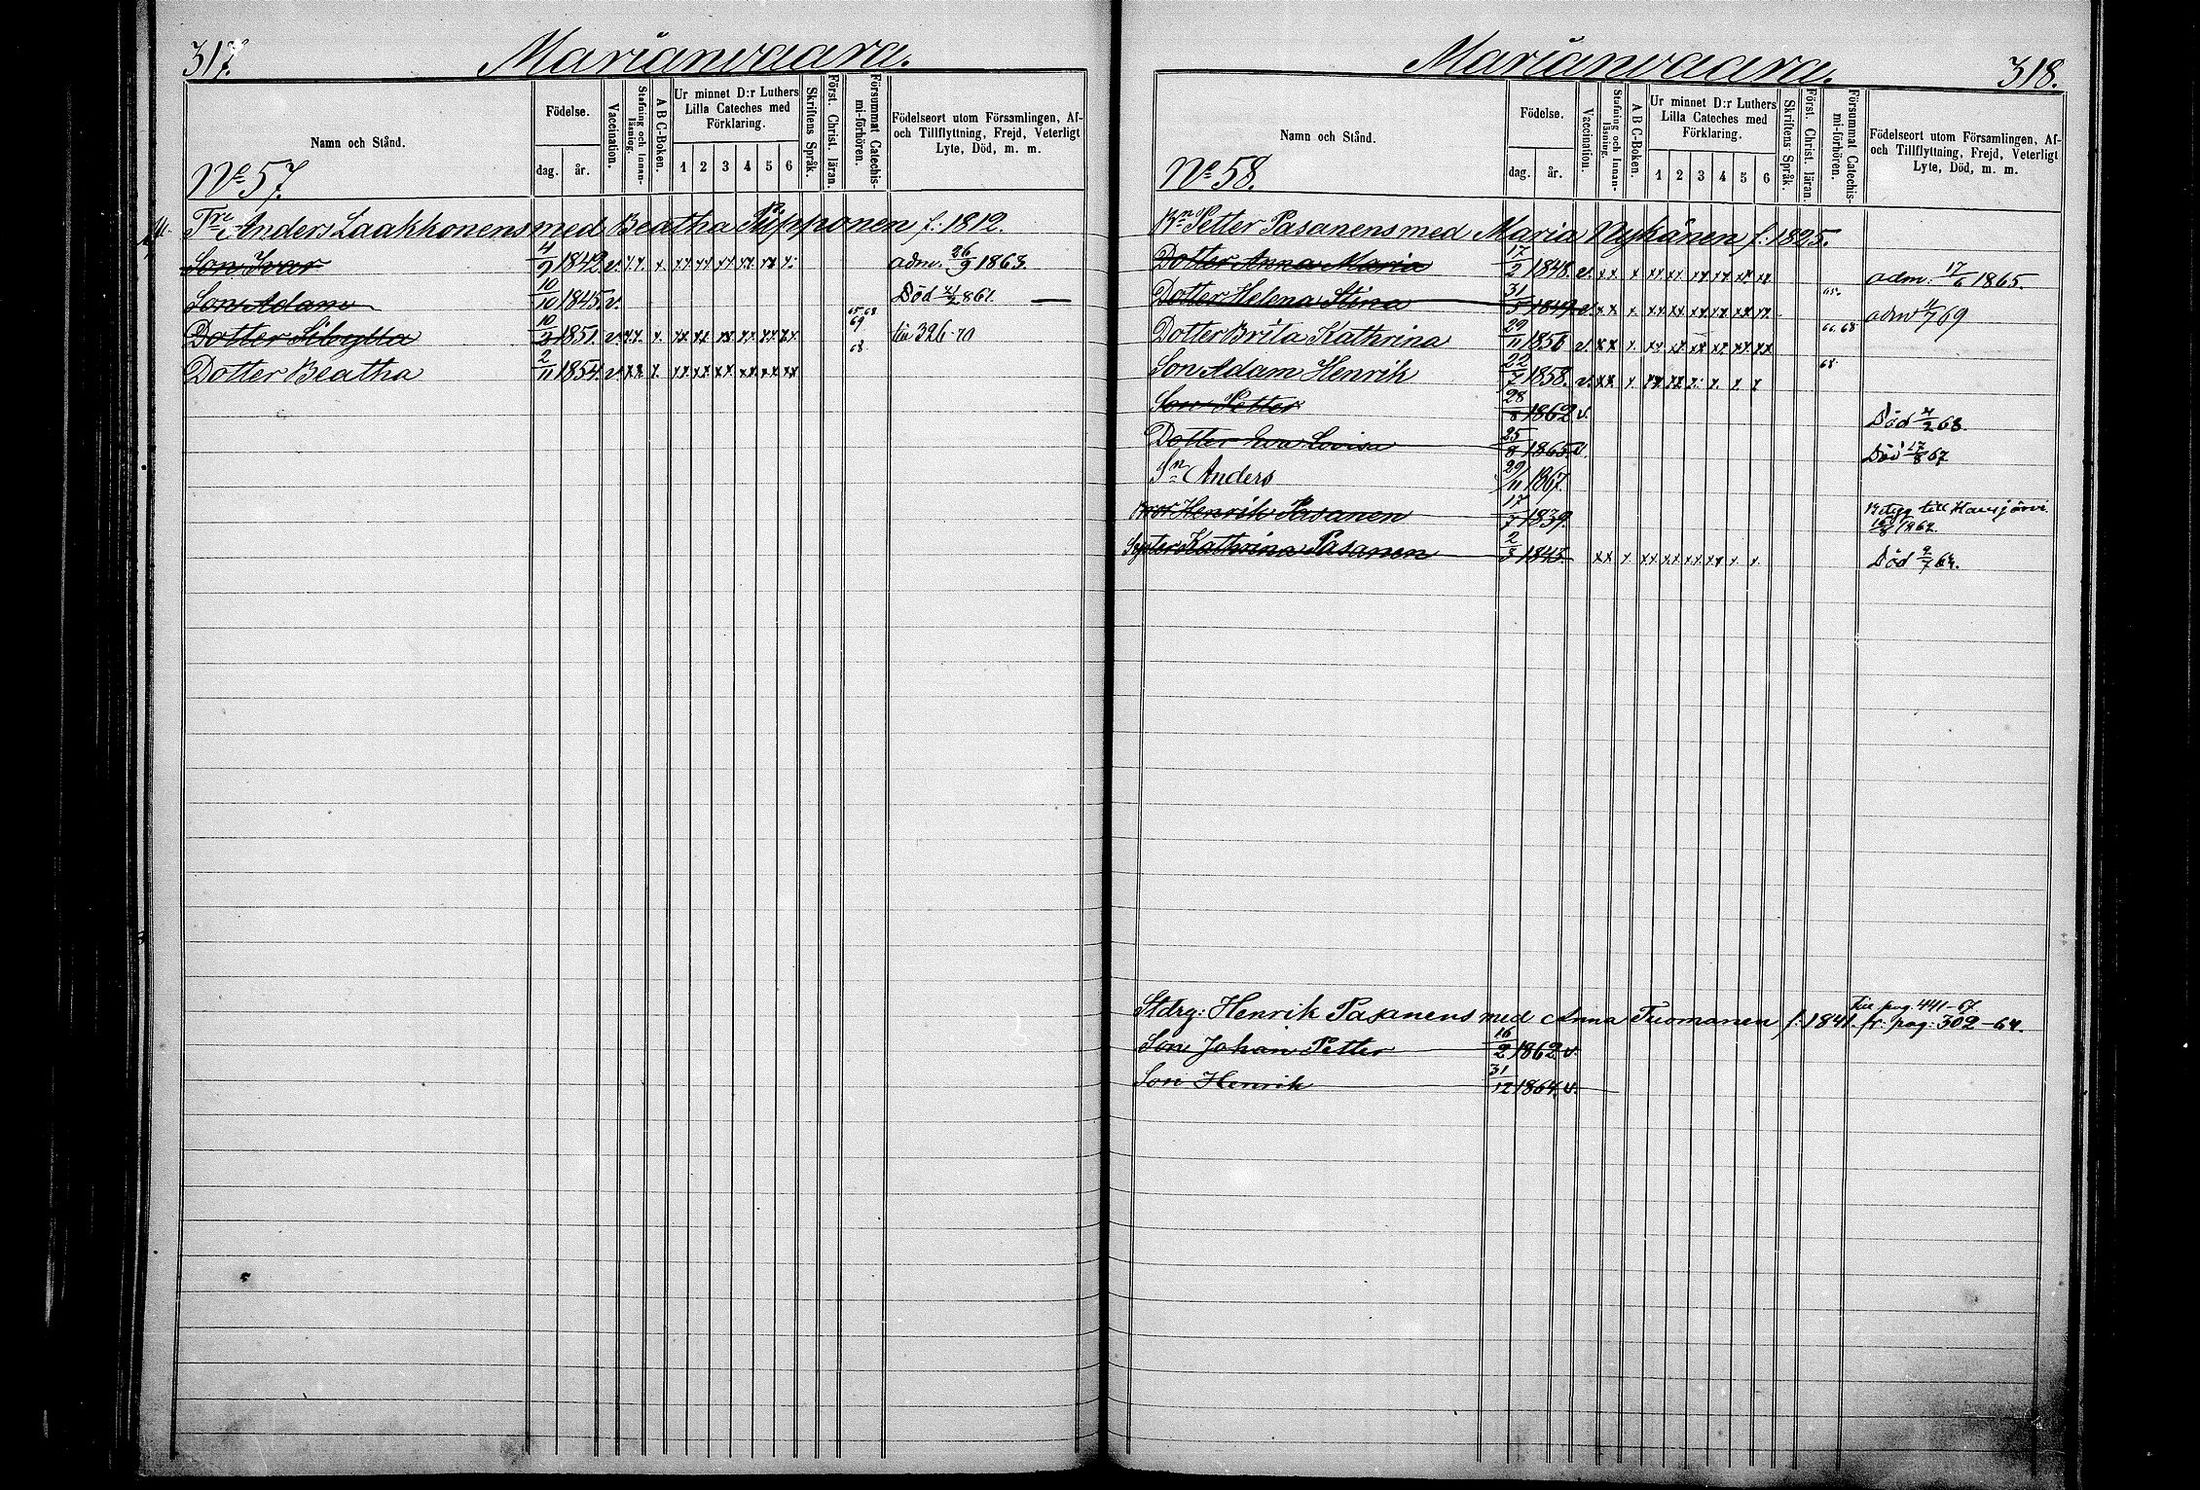 317.
Marianvaara.
Namn och Stånd.
Födelse.
dag.
år.
Vaccination.
Stafning och Innanläsning.
A B C-Boken.
Ur minnet D:r Luthers Lilla Cateches med Förklaring.
1 2 3 4 5 6
Skriftens Språk.
Först. Christ. läran.
Försummat Catechismi-förhören.
Födelseort utom Församlingen, Af- och Tillflyttning, Frejd, Veterligt Lyte, Död, m. m.
No 57.
Anders Laakkonens med Beatha Piipponen f: 1812.
Son Ivar 4/9 1842 v. adm. 26/9 1863.
Son Adam 10/10 1845 v. Död 861.
Dotter Sibylla 10/2 1851 v. 69 till 326-70
Dotter Beatha 2/11 1854 v. 68
Marianvaara.
318.
Namn och Stånd.
Födelse.
dag.
år.
Vaccination.
Stafning och Innanläsning.
A B C-Boken.
Ur minnet D:r Luthers Lilla Cateches med Förklaring.
1 2 3 4 5 6
Skriftens Språk.
Först. Christ. läran.
Försummat Catechismi-förhören.
Födelseort utom Församlingen, Af- och Tillflyttning, Frejd, Veterligt Lyte, Död, m. m.
No 58.
Petter Pasanens med Maria Nykänen f: 1825.
Dotter Anna Maria 17/2 1848 v. adm. 17/6 1865
Dotter Helena Stina 31/5 1849 v. 65. adm 69
Dotter Brita Kathrina 29/11 1856 v. 66, 68
Son Adam Henrik 22/7 1858. v. 68
Son Petter 28/8 1862 v. Död 68.
Dotter Eva Lovisa 25/8 1865 v. Död 17/8 67
Sn Anders 29/11 1867.
Bror Henrik Pasanen 17/7 1839 till 1862.
Syster Kathrina Pasanen 1843. Död
Henrik Pasanens med Anna Tuomanen f: 1841. fr. pag: 302-64.
till pag 441-67
Son Johan Petter 16/2 1862 v.
Son Henrik 31/12 1864. v.